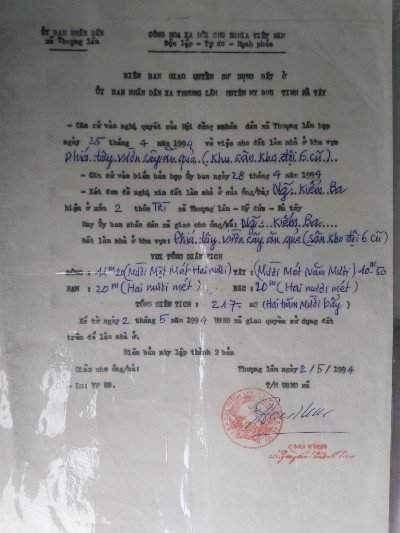 ỦY BAN NHÂN DÂN
xã Thượng Lâm
CỘNG HÒA XÃ HỘI CHỦ NGHĨA VIỆT NAM
Độc lập - Tự do - Hạnh phúc
BIÊN BẢN GIAO QUYỀN SỬ DỤNG ĐẤT Ở
ỦY BAN NHÂN DÂN XÃ THƯỢNG LÂM HUYỆN MỸ ĐỨC TỈNH HÀ TÂY
- Căn cứ vào nghị quyết của Hội đồng nhân dân xã Thượng Lâm họp
ngày 25 tháng 4 năm 1994 về việc cho đất làm nhà ở khu vực
phía tây vườn cây ăn quả (khu sân kho đội 6 cũ)
- Căn cứ vào biên bản họp ủy ban ngày 28 tháng 4 năm 1994
- Xét đơn đề nghị xin đất làm nhà ở của ông/bà: Ngô Kiếm Ba
hiện ở xóm 2 thôn Trì xã Thượng Lâm - Mỹ Đức - Hà tây
Nay Ủy ban nhân dân xã giao cho ông/bà: Ngô Kiếm Ba
Đất làm nhà ở khu vực: phía tây vườn cây ăn quả (sân kho đội 6 cũ)
VỚI TỔNG DIỆN TÍCH
ĐÔNG: 11m20 (Mười Một Mét Hai mươi) TÂY: (Mười Mét Năm Mươi) 10m50
NAM: 20m (Hai mươi mét) BẮC: 20m (Hai mươi mét)
TỔNG DIỆN TÍCH: 217 m2 (Hai trăm mười bảy)
Kể từ ngày 2 tháng 5 năm 1994 UBND xã giao quyền sử dụng đất
trên để làm nhà ở.
Biên bản này lập thành 2 bản
- Giao cho ông/bà:
- Lưu VP UB.
Thượng Lâm ngày 2/5/1994
T/M UBND xã